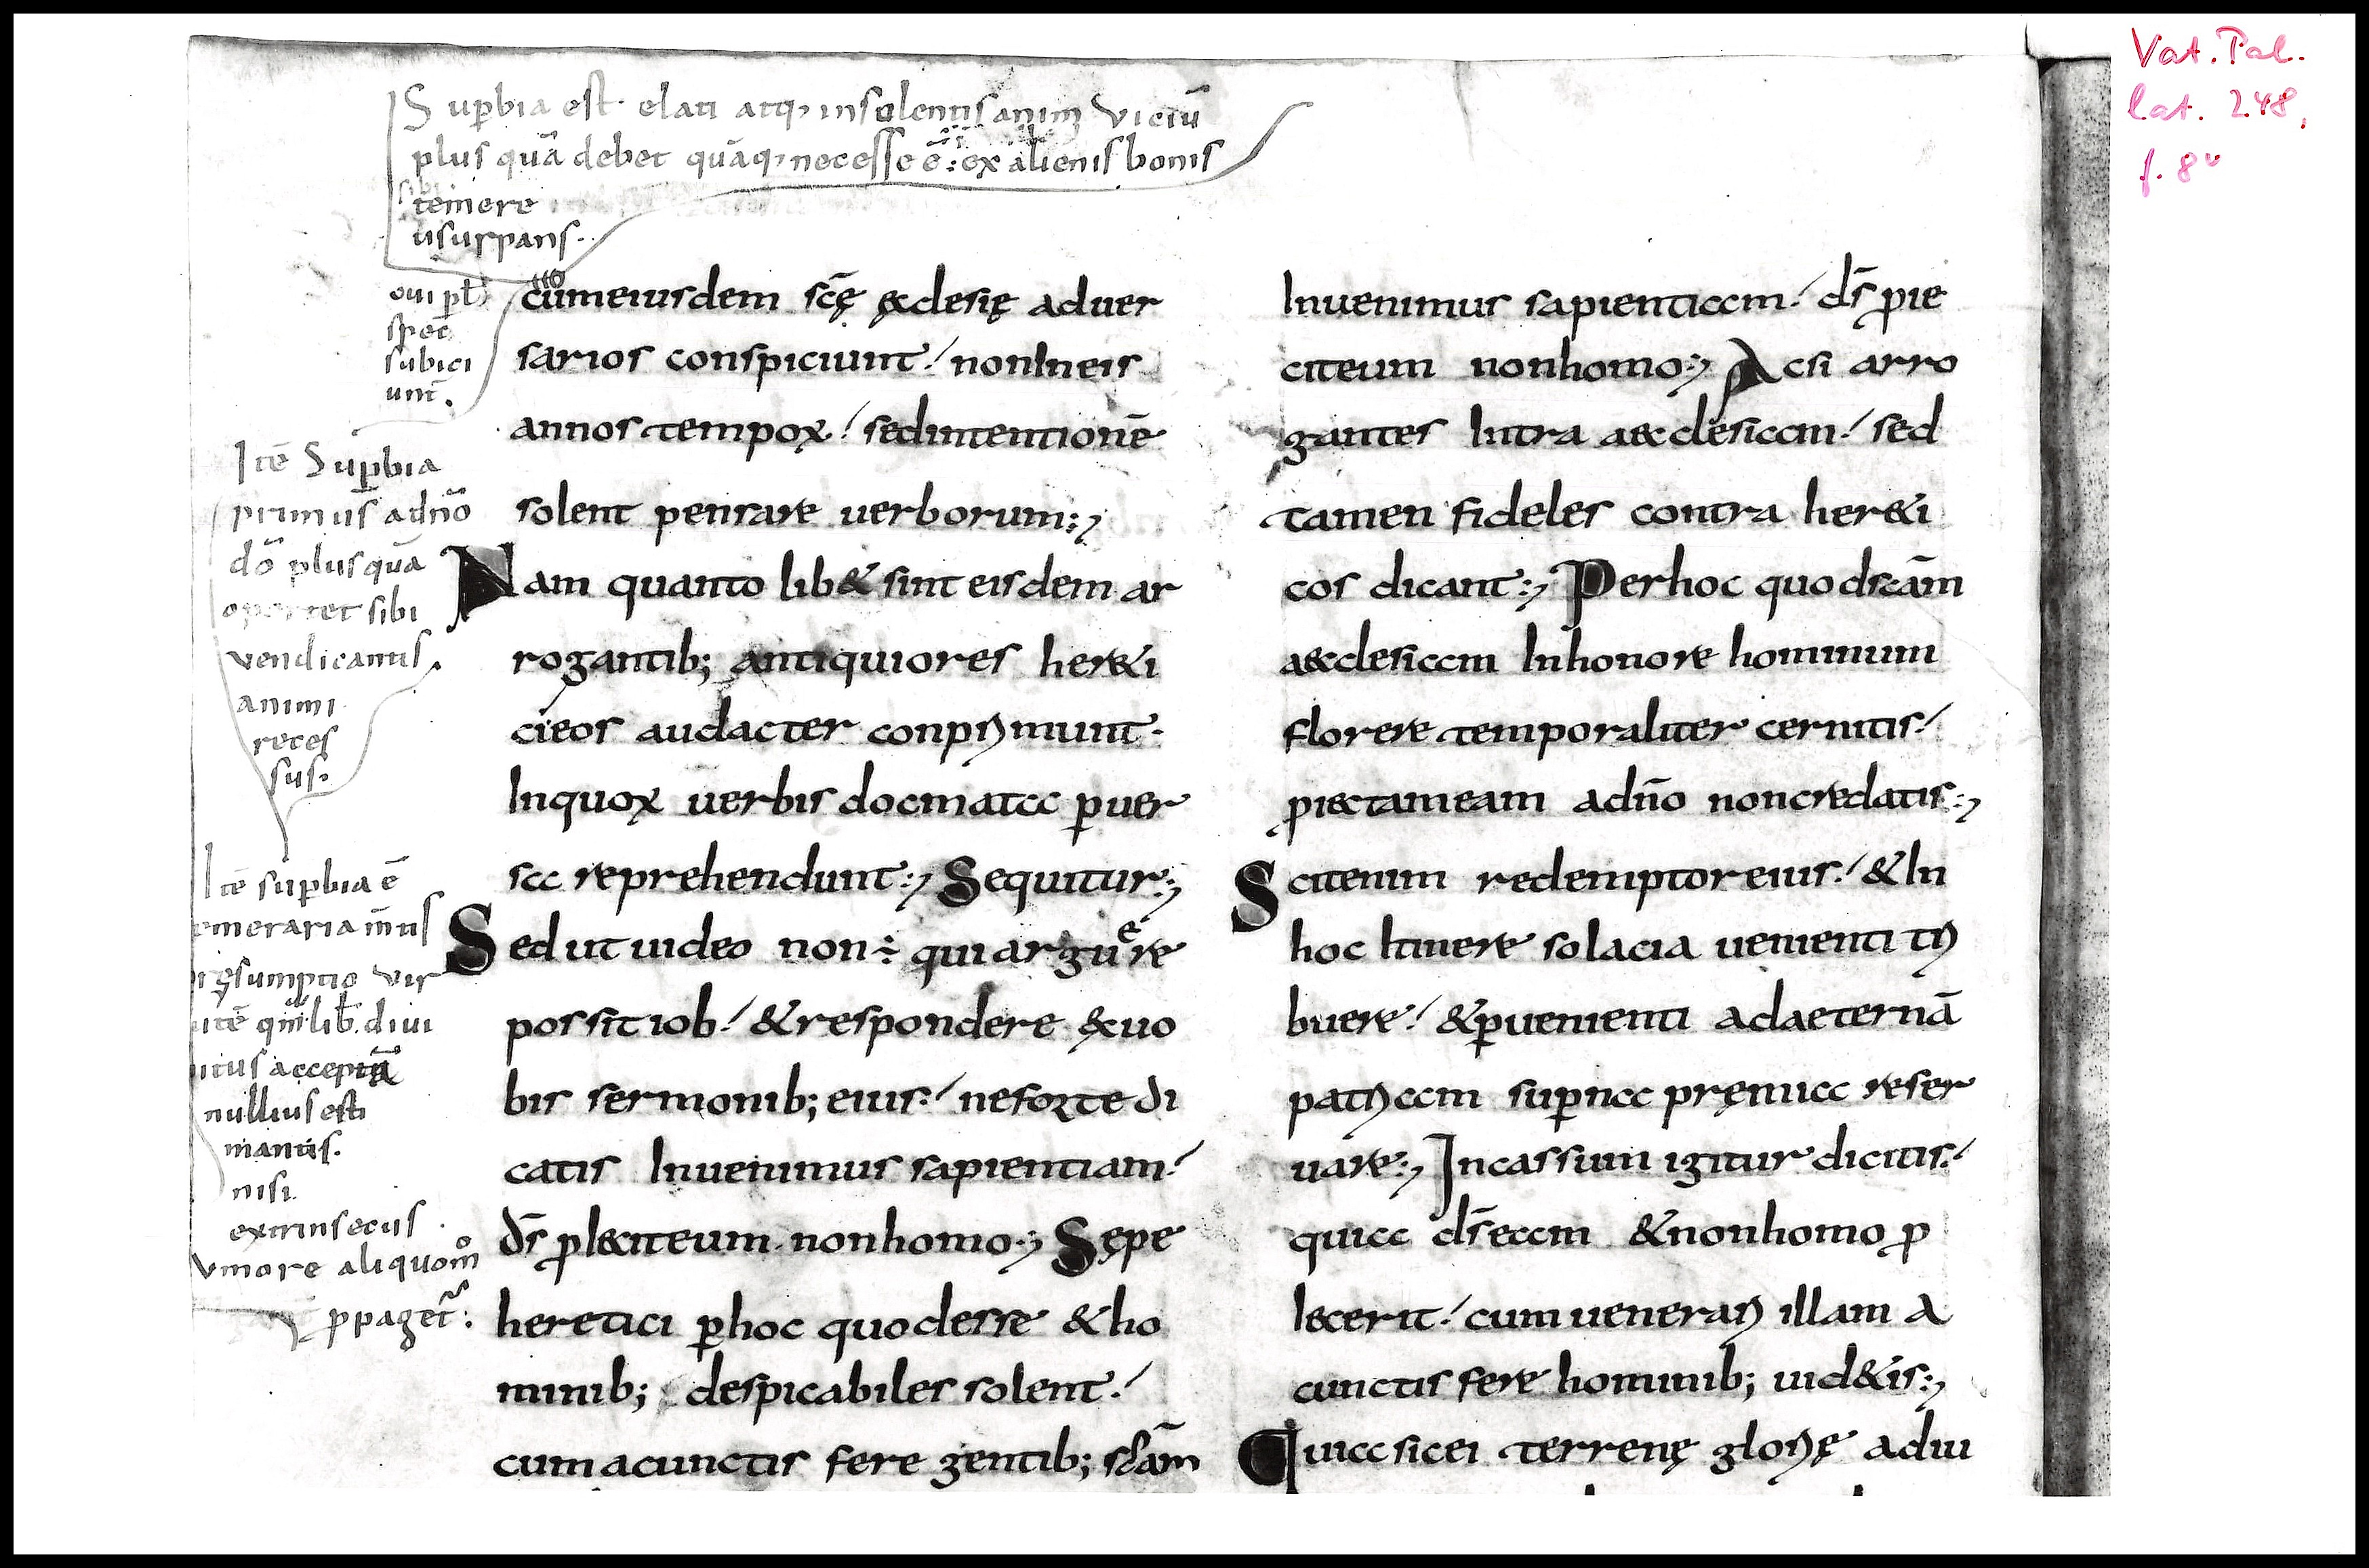 Vat. Pal.
lat. 248,
f. 8v
Sup̄bia est elati atq; insolentis animi vitiū
plus quā debet quāq; necesse ē: ex alienis bonis
sibi
temere
usurpans.
subici
unt.
Itē Sup̄bia
primus adnō
dō plusquā
oportet sibi
vendicantis
animi
reces
sus.
Itē sup̄bia ē
emeraria
presumptio vir
utē lib. diui
itus acceptā
nullius esti
mantis.
nisi
extrinsecus
Vmore aliquom̊
ppaget̄:
cūmeiusdem scę̄ ęcclesię aduer
sarios conspiciunt! nonIneis
annos tempoꝝ! sedintentionē
solent pensare uerborum:,
Nam quanto lib& sint eisdem ar
rogantib; antiquiores her&i
cieos audacter conprimunt.
Inquoꝝ uerbis docmata ꝑuer
sa reprehendunt:, Sequitur:,
Sed ut uideo non ÷ qui arguere
possit iob! & respondere exuo
bis sermonib; eius! neforte di
catis Inuenimus sapientiam!
d̄s ꝓiecit eum. nonhomo:, Sępe
heretici ꝑhoc quodesse & ho
minib; despicabiles solent!
cumacunctis fere gentib; scām
Inuenimus sapientiam! d̄s ꝓie
citeum nonhomo:, Acsi arro
gantes Intra aecclesiam! sed
tamen fideles contra her&i
cos dicant:, Perhoc quodscām
aecclesiam Inhonore hominum
florere temporaliter cernitis!
ꝓiectameam adn̄o noncredatis:,
Scitenim redemptoreius! & In
hoc Itinere solacia uenienti tri
buere! & ꝑuenienti adaeternā
patriam suꝑna pręmia reser
uare:, Incassum igitur dicitis!
quia d̄seam & nonhomo ꝓ
iecerit! cum uenerari illam a
cunctis fere hominib; uid&is:,
Quiasicei terrenę glorię adiu